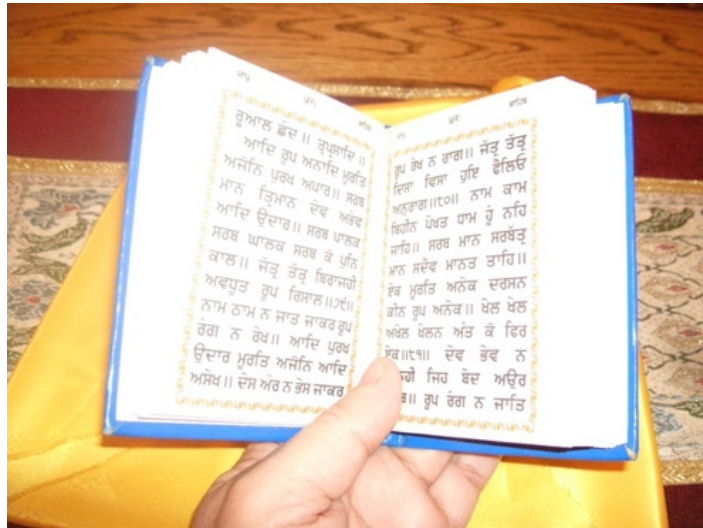 ਜਾਪੁ (੬੨) ਸਾਹਿਬ
ਰੂਆਲ ਛੰਦ ॥ ਤ੍ਵਪ੍ਰਸਾਦਿ ॥
ਆਦਿ ਰੂਪ ਅਨਾਦਿ ਮੂਰਤਿ
ਅਜੋਨਿ ਪੁਰਖ ਅਪਾਰ॥ ਸਰਬ
ਮਾਨ ਤ੍ਰਿਮਾਨ ਦੇਵ ਅਭੇਵ
ਆਦਿ ਉਦਾਰ॥ ਸਰਬ ਪਾਲਕ
ਸਰਬ ਘਾਲਕ ਸਰਬ ਕੋ ਪੁਨਿ
ਕਾਲ॥ ਜੱਤ੍ਰ ਤੱਤ੍ਰ ਬਿਰਾਜਹੀ
ਅਵਧੂਤ ਰੂਪ ਰਿਸਾਲ॥੭੯॥
ਨਾਮ ਠਾਮ ਨ ਜਾਤ ਜਾਕਰ ਰੂਪ
ਰੰਗ ਨ ਰੇਖ॥ ਆਦਿ ਪੁਰਖ
ਉਦਾਰ ਮੂਰਤਿ ਅਜੋਨਿ ਆਦਿ
ਅਸੇਖ॥ ਦੇਸ ਔਰ ਨ ਭੇਸ ਜਾਕਰ
ਸਾਹਿਬ
ਰੂਪ ਰੇਖ ਨ ਰਾਗ॥ ਜੱਤ੍ਰ ਤੱਤ੍ਰ
ਦਿਸਾ ਵਿਸਾ ਹੁਇ ਫੈਲਿਓ
ਅਨੁਰਾਗ॥੮੦॥ ਨਾਮ ਕਾਮ
ਬਿਹੀਨ ਪੇਖਤ ਧਾਮ ਹੂੰ ਨਹਿ
ਜਾਹਿ॥ ਸਰਬ ਮਾਨ ਸਰਬੱਤ੍ਰ
ਮਾਨ ਸਦੈਵ ਮਾਨਤ ਤਾਹਿ॥
ਏਕ ਮੂਰਤਿ ਅਨੇਕ ਦਰਸਨ
ਕੀਨ ਰੂਪ ਅਨੇਕ॥ ਖੇਲ ਖੇਲ
ਅਖੇਲ ਖੇਲਨ ਅੰਤ ਕੋ ਫਿਰ
ਏਕ॥੮੧॥ ਦੇਵ ਭੇਵ ਨ
ਜਿਹ ਬੇਦ ਅਉਰ
ਰੂਪ ਰੰਗ ਨ ਜਾਤਿ